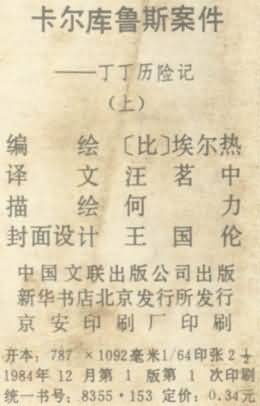 卡尔库鲁斯案件
——丁丁历险记
（上）
编 绘 〔比〕埃尔热
译 文 汪 茗 中
描 绘 何 力
封面设计 王 国 伦
中国文联出版公司出版
新华书店北京发行所发行
京安印刷厂印刷
开本：787 ×1092毫米1/64印张2½
1984年12月第1版第1次印刷
统一书号：8355·153 定价：0.34元